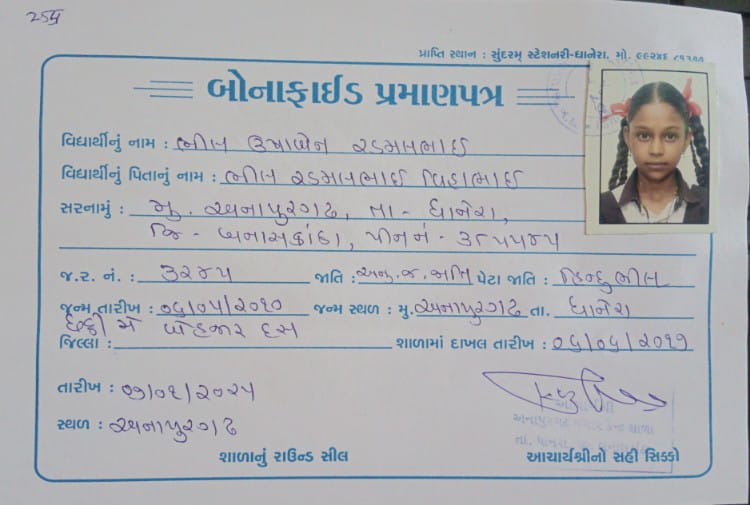 254
પ્રાપ્તિ સ્થાન : સુંદરમ્ સ્ટેશનરી-ધાનેરા, મો. ૯૯૨૪૬
બોનાફાઈડ પ્રમાણપત્ર
વિદ્યાર્થીનું નામ : ભીલ ઉષાબેન રડમલભાઈ
વિદ્યાર્થીનું પિતાનું નામ : ભીલ રડમલભાઈ વિહાભાઈ
સરનામું : મુ. અનાપુરગઢ, તા- ધાનેરા,
જિ- બનાસકાંઠા, પીનનં- ૩૮૫૫૪૫
જ.ર. નં. : ૩૨૪૫ જાતિ : અનુ.જ.જાતિ પેટા જાતિ : હિન્દુ ભીલ
જન્મ તારીખ : ૦૬/૦૫/૨૦૧૦ જન્મ સ્થળ : મુ. અનાપુરગઢ તા. ધાનેરા
છઠ્ઠી મે બેહજાર દસ
જિલ્લા : શાળામાં દાખલ તારીખ : ૦૬/૦૬/૨૦૧૭
તારીખ : ૦૭/૦૧/૨૦૨૫
સ્થળ : અનાપુરગઢ
શાળાનું રાઉન્ડ સીલ આચાર્યશ્રીનો સહી સિક્કો